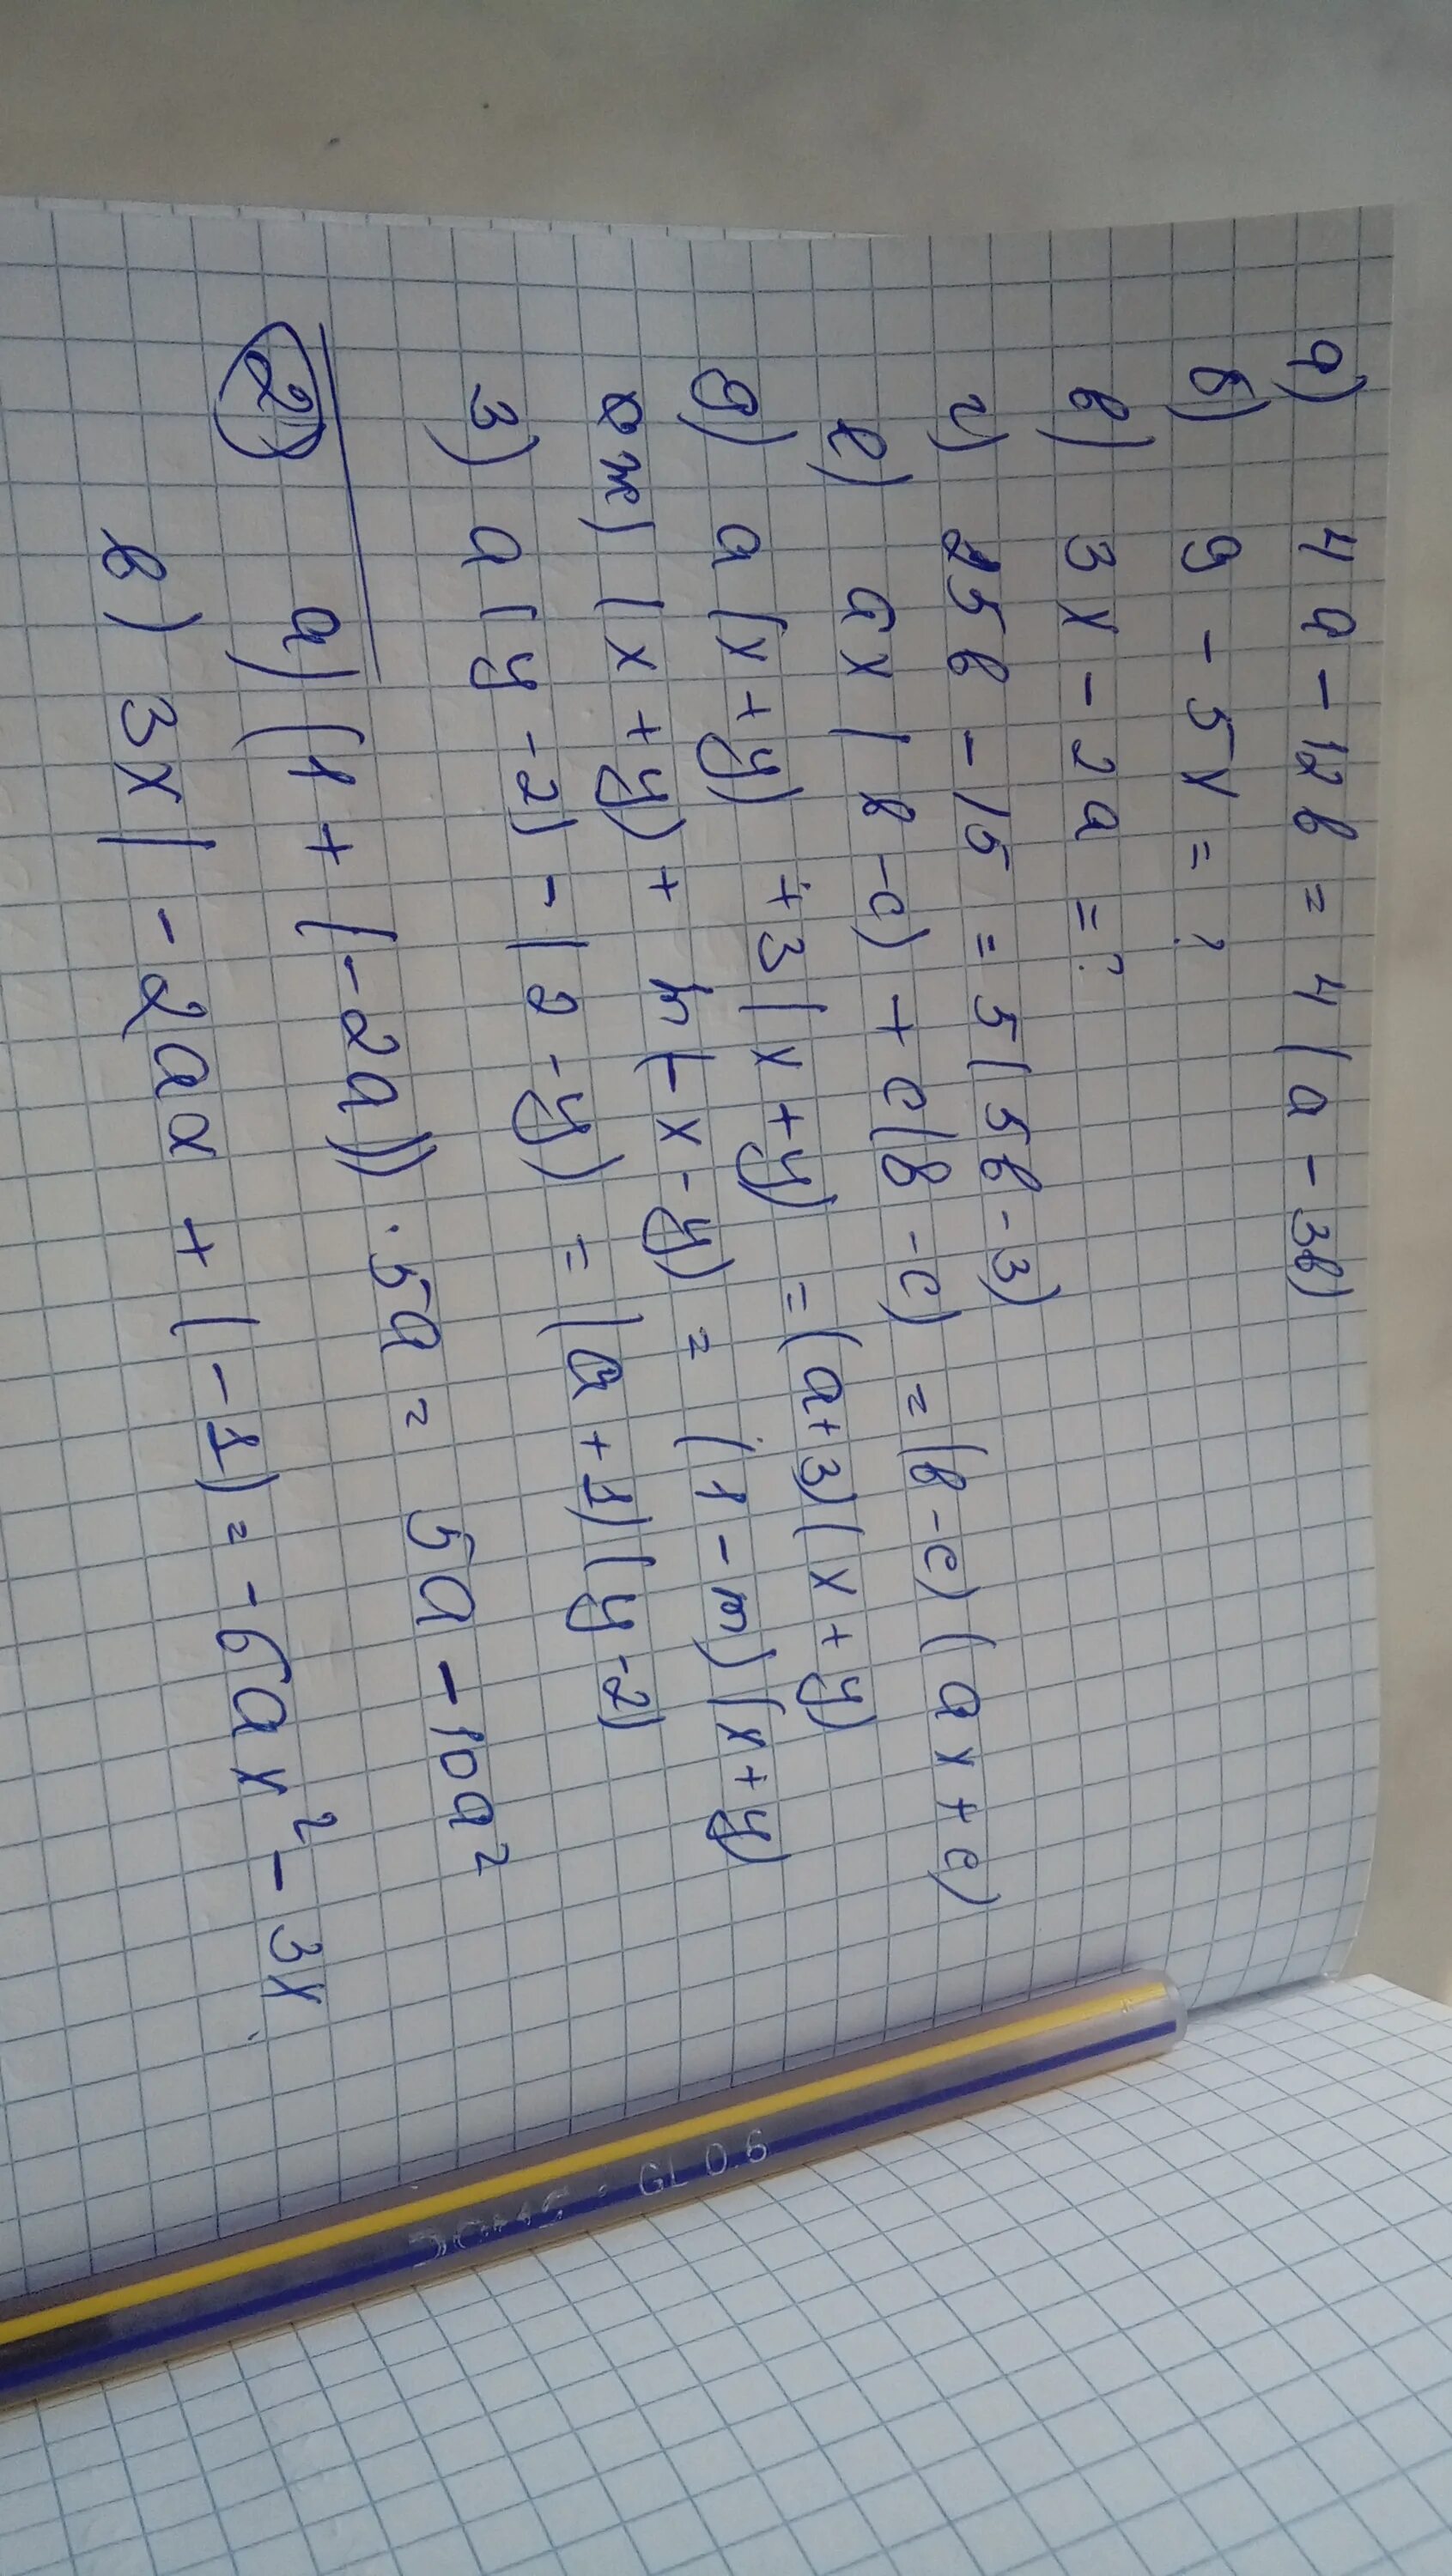 а) 4a - 12b = 4(a - 3b)
б) 9 - 5x = ?
в) 3x - 2a = ?
г) 25b - 15 = 5(5b - 3)
е) ax(b - c) + c(b - c) = (b - c)(ax + c)
д) a(x + y) + 3(x + y) = (a + 3)(x + y)
ж) (x + y) + m(-x - y) = (1 - m)(x + y)
з) a(y - 2) - (2 - y) = (a + 1)(y - 2)
2) а) (1 + (-2a)) · 5a = 5a - 10a²
в) 3x(-2ax + (-1) = -6ax² - 3x
GL 0.6